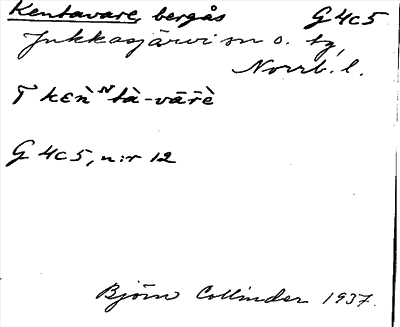 Kentavare, bergås G4c5
Jukkasjärvi sn o. tg,
Norrb. l.
T kɛǹᴺtà-vār̀è
G 4c5, n:r 12
Björn Collinder 1937.